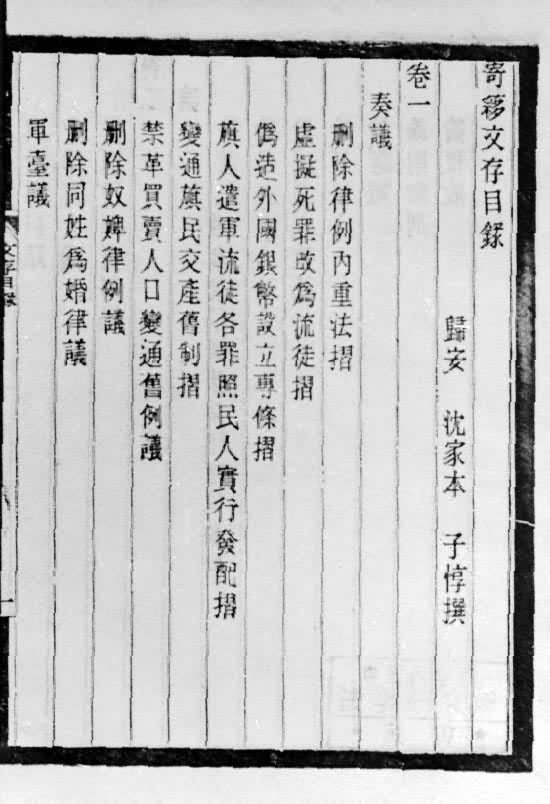 寄簃文存目錄
歸安 沈家本 子惇撰
卷一
奏議
刪除律例內重法摺
虛擬死罪改為流徒摺
偽造外國銀幣設立專條摺
旗人遣軍流徒各罪照民人實行發配摺
變通旗民交產舊制摺
禁革買賣人口變通舊例議
刪除奴婢律例議
刪除同姓為婚律議
軍臺議
文存目錄
一